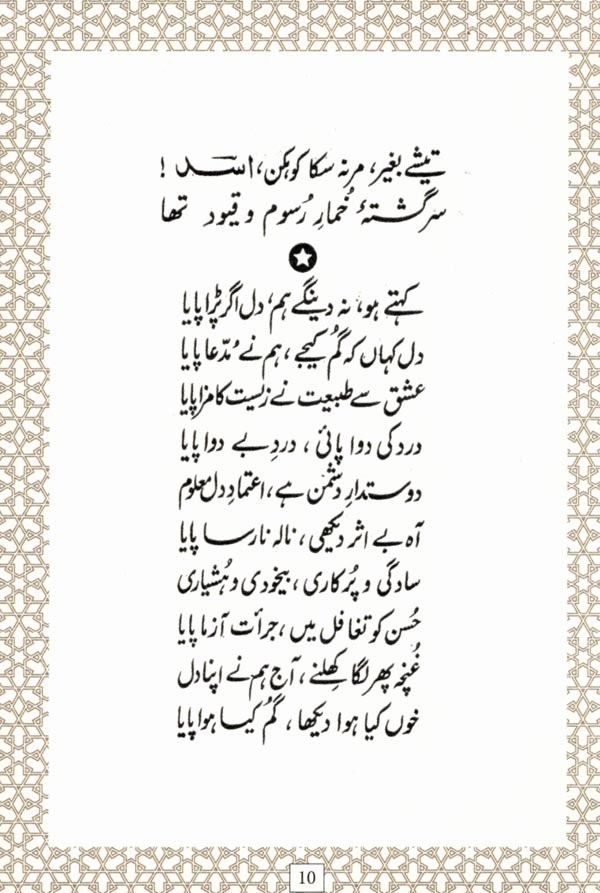 تیشے بغیر، مر نہ سکا کوہکن، اسد !
سرگشتۂ خُمارِ رُسوم و قیود تھا
کہتے ہو، نہ دینگے ہم، دل اگر پڑا پایا
دل کہاں کہ گُم کیجے، ہم نے مُدّعا پایا
عشق سے طبیعت نے زیست کا مزا پایا
درد کی دوا پائی، دردِ بے دوا پایا
دوستدارِ دشمن ہے، اعتمادِ دل معلوم
آہ بے اثر دیکھی، نالہ نارسا پایا
سادگی و پُرکاری، بیخودی و ہُشیاری
حُسن کو تغافل میں، جرأت آزما پایا
غُنچہ پھر لگا کھِلنے، آج ہم نے اپنا دل
خوں کیا ہوا دیکھا، گُم کیا ہوا پایا
10